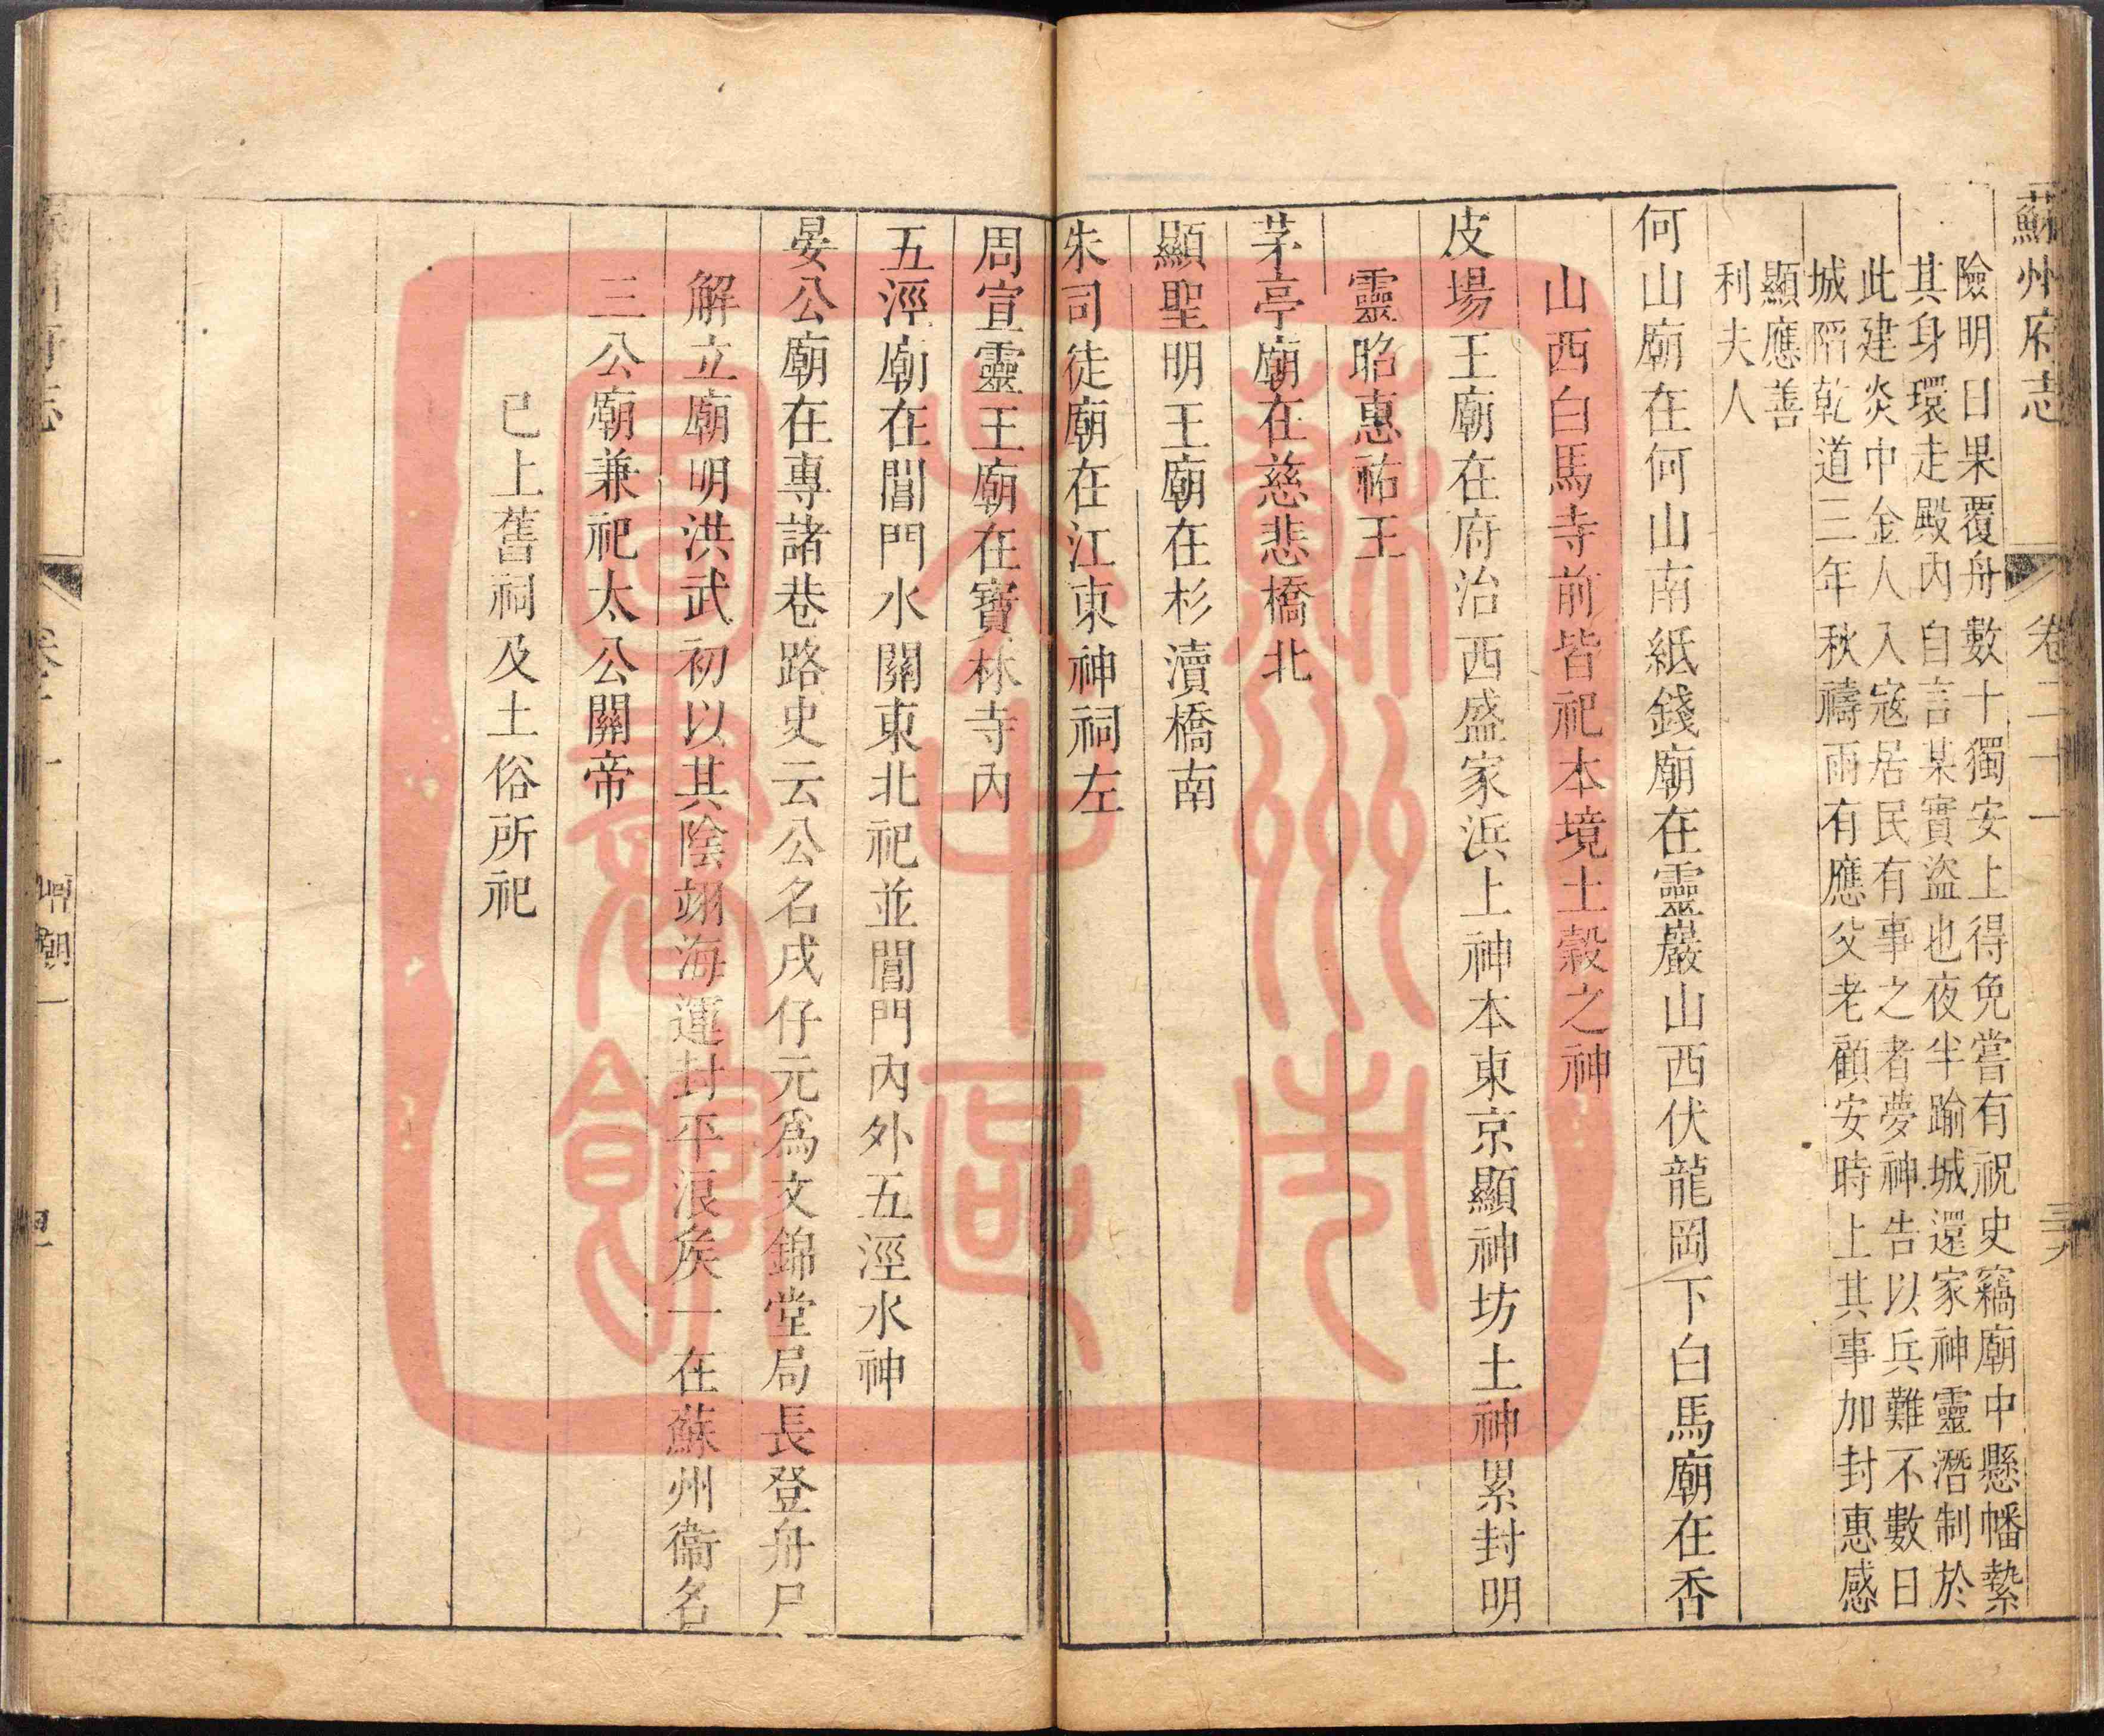 蘇州府志
卷二十一
三九
險明日果覆舟數十獨安上得免嘗有祝史竊廟中懸幡縶
其身環走殿內自言某實盜也夜半踰城還家神靈潛制於
此建炎中金人入寇居民有事之者夢神告以兵難不數日
城陷乾道三年秋禱雨有應父老顧安時上其事加封惠感
顯應善
利夫人
何山廟在何山南紙錢廟在靈巖山西伏龍岡下白馬廟在香
山西白馬寺前皆祀本境土穀之神
皮場王廟在府治西盛家浜上神本東京顯神坊土神累封明
靈昭惠祐王
茅亭廟在慈悲橋北
顯聖明王廟在杉瀆橋南
朱司徒廟在江東神祠左
周宣靈王廟在寶林寺內
五涇廟在閶門水關東北祀並閶門內外五涇水神
晏公廟在專諸巷路史云公名戌仔元爲文錦堂局長登舟尸
解立廟明洪武初以其陰翊海運封平浪矦一在蘇州衞名
三公廟兼祀太公關帝
已上舊祠及土俗所祀
蘇州市
文中區
圖書館